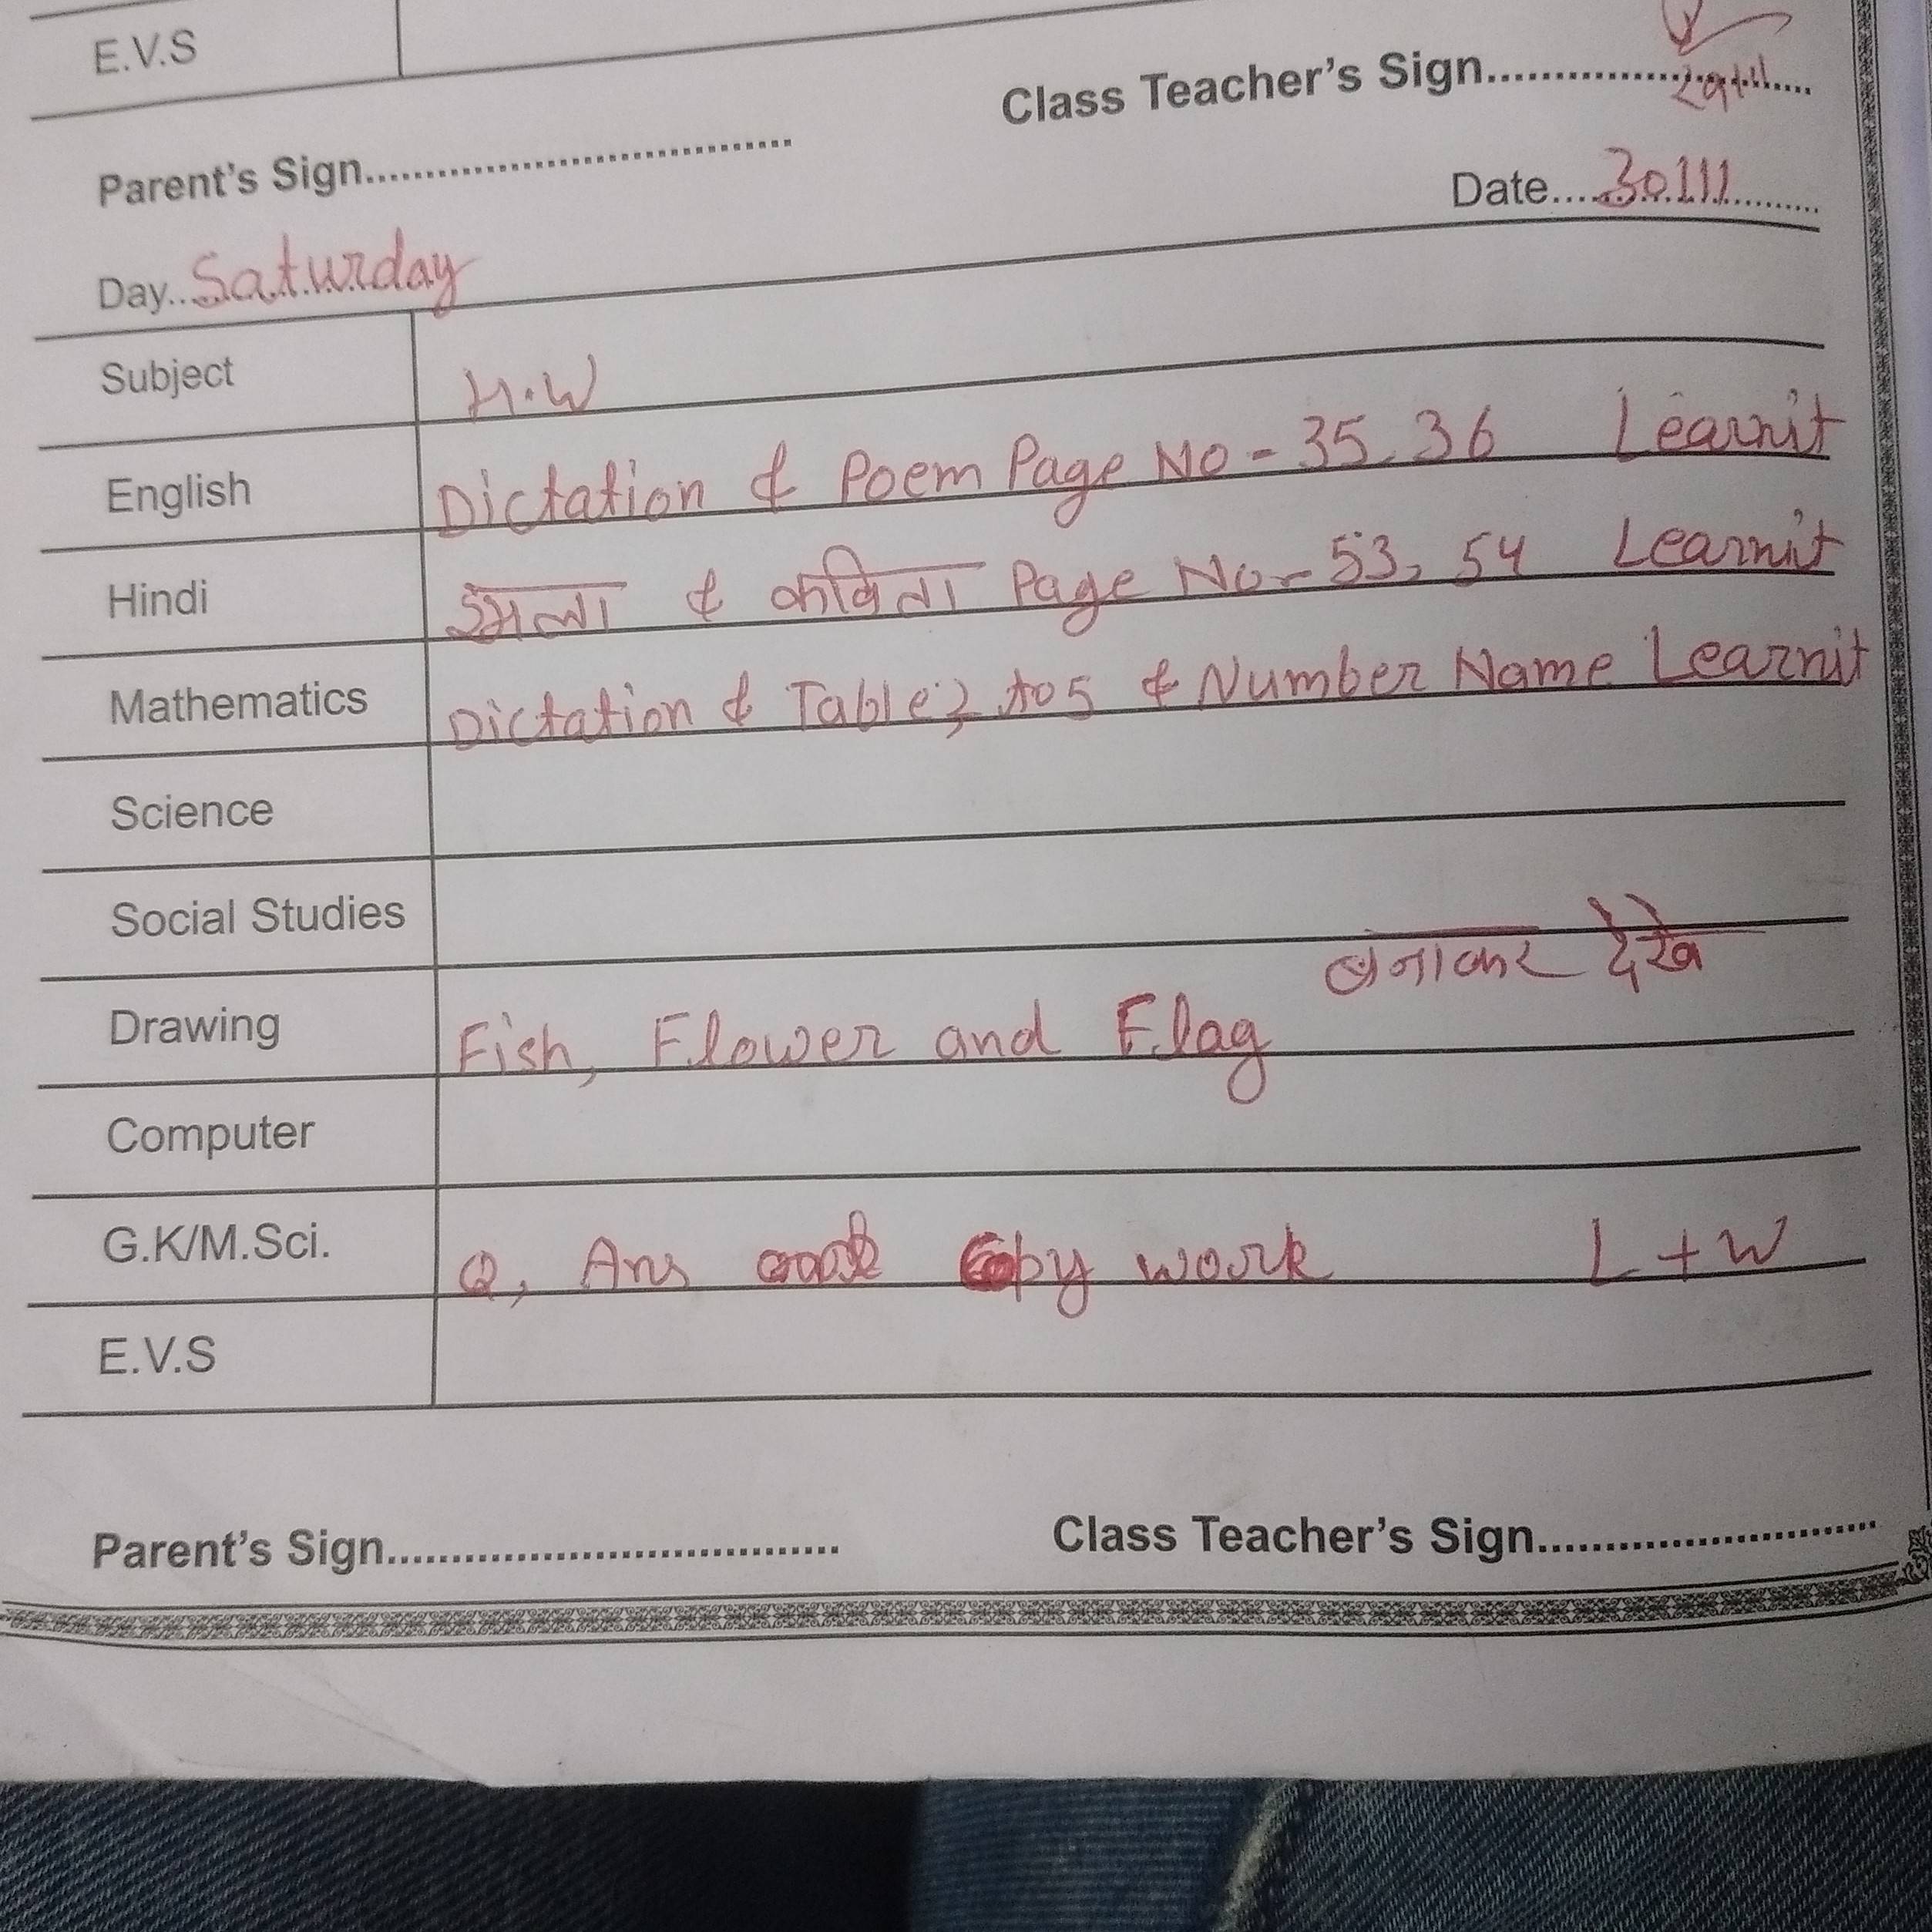 E.V.S
Class Teacher's Sign....................
Parent's Sign....................
Date....30.11....
Day..Saturday
Subject H.W
English Dictation & Poem Page No - 35, 36 Learnit
Hindi & कविता Page No - 53, 54 Learnit
Mathematics Dictation & Table 2 to 5 & Number Name Learnit
Science
Social Studies
बनाकर देखे
Drawing Fish, Flower and Flag
Computer
G.K/M.Sci. Q, Ans Copy work L + W
E.V.S
Parent's Sign....................
Class Teacher's Sign....................